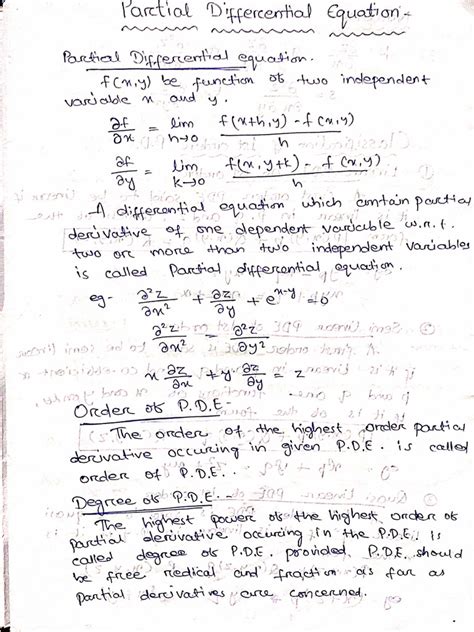 Partial Differential Equation:-
Partial Differential equation.
f(x,y) be function of two independent
variable x and y.
∂f/∂x = lim h→0 f(x+h,y) - f(x,y) / h
∂f/∂y = lim k→0 f(x,y+k) - f(x,y) / h
A differential equation which contain partial
derivative of one dependent variable w.r.t.
two or more than two independent variables
is called Partial differential equation.
eg- ∂²z/∂x² + ∂z/∂y + e^(x-y) = 0
∂²z/∂x² = ∂²z/∂y²
x ∂z/∂x + y ∂z/∂y = z
Order of P.D.E.
The order of the highest order partial
derivative occuring in given P.D.E. is called
order of P.D.E.
Degree of P.D.E.
The highest power of the highest order of
partial derivative occuring in the P.D.E. is
called degree of P.D.E. provided P.D.E. should
be free redical and fraction as far as
Partial derivatives are concerned.